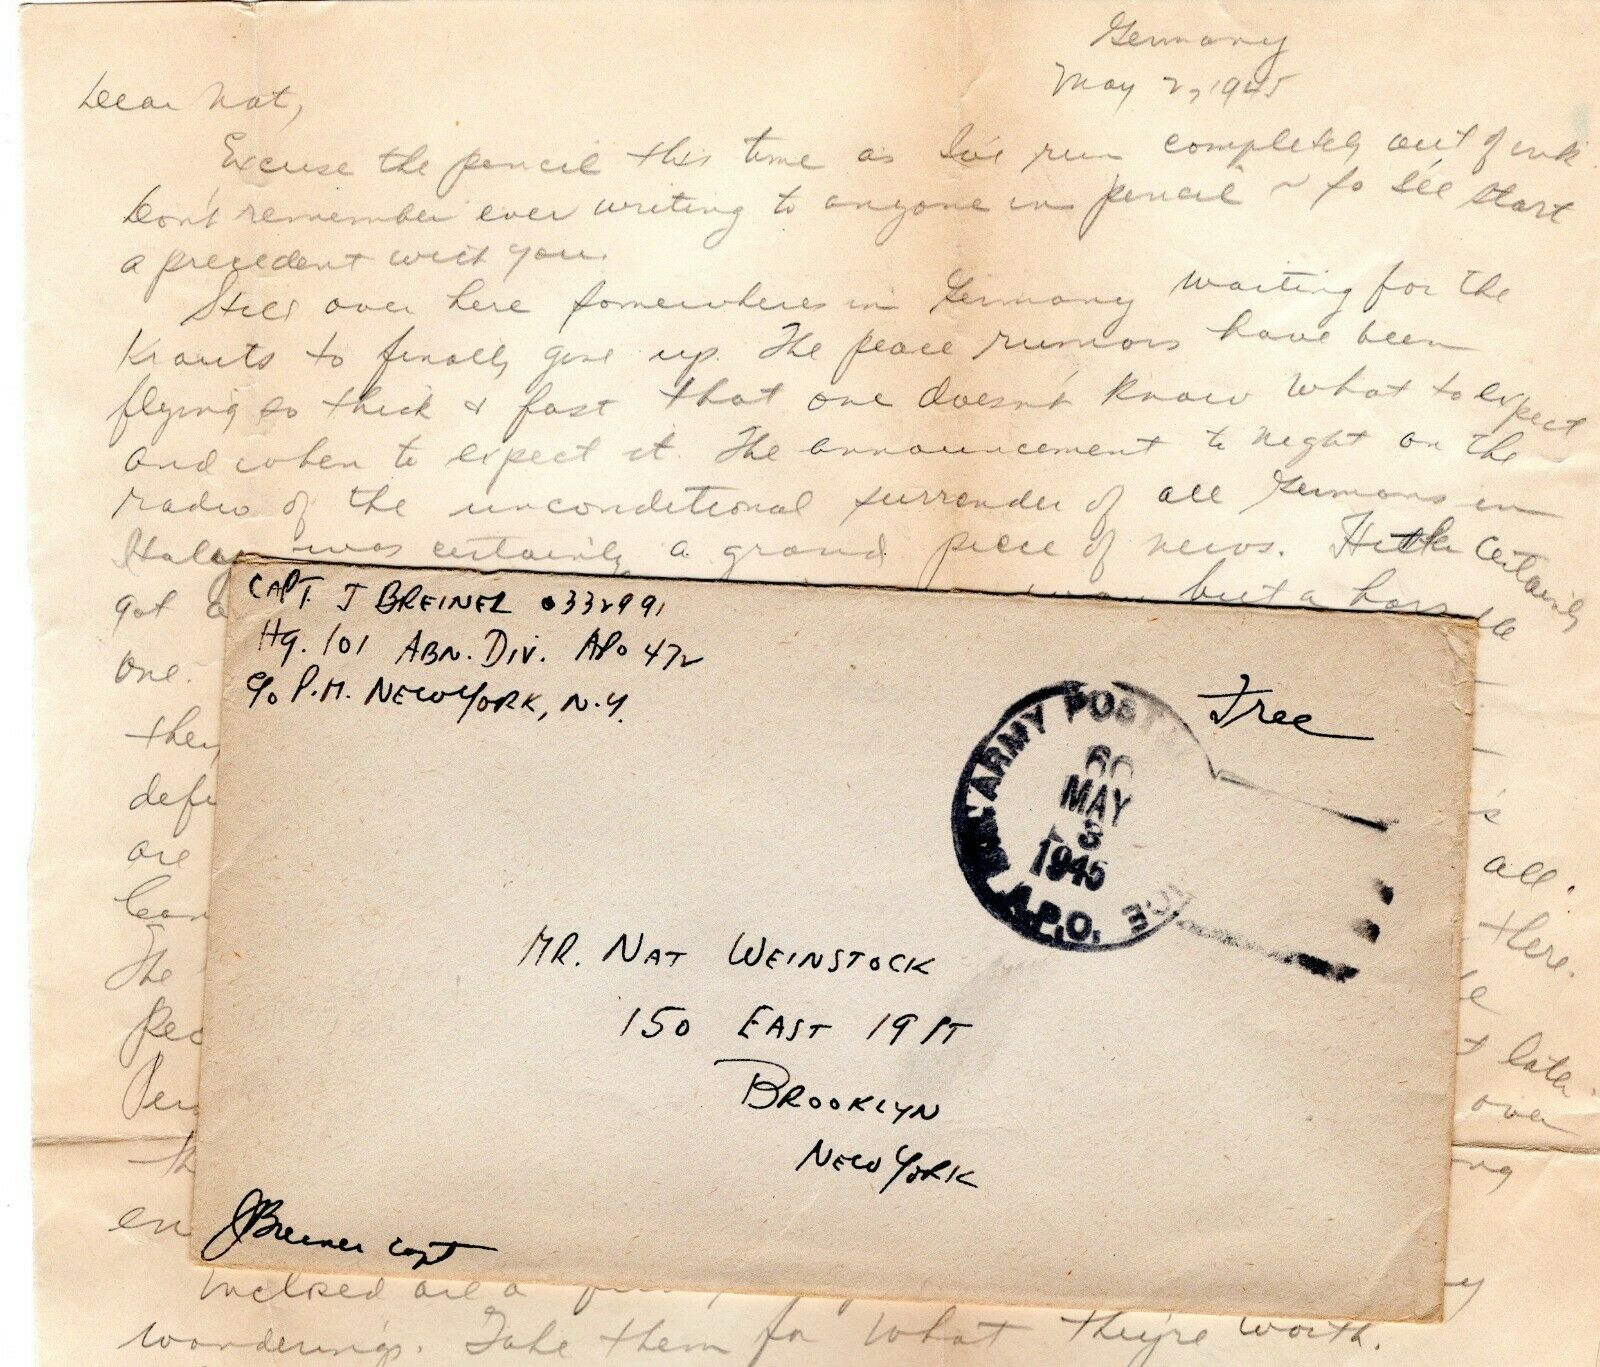 Germany
May 2, 1945
Dear Nat,
Excuse the pencil this time as I've run completely out of ink
Don't remember ever writing to anyone in pencil ~ so I'll start
a precedent with you.
Still over here somewheres in Germany waiting for the
Krauts to finally give up. The peace rumors have been
flying so thick & fast that one doesn't know what to expect
and when to expect it. The announcement to night on the
radio of the unconditional surrender of all Germans in
Italy was certainly a grand piece of news. Hitler certainly
got a but a horrible
one.
they
defe
are all.
there.
The
Peo later
Per over
en
Inclosed are a
wanderings. Take them for what they're worth.
CAPT. J BREINER 0332991
Hq. 101 ABN. DIV. APO 472
c/o P.M. NEW YORK, N.Y.
Free
U.S. ARMY POSTAL SERVICE
A.P.O.
MAY
3
1945
MR. NAT WEINSTOCK
150 EAST 19 ST
BROOKLYN
NEW YORK
J Breiner Capt